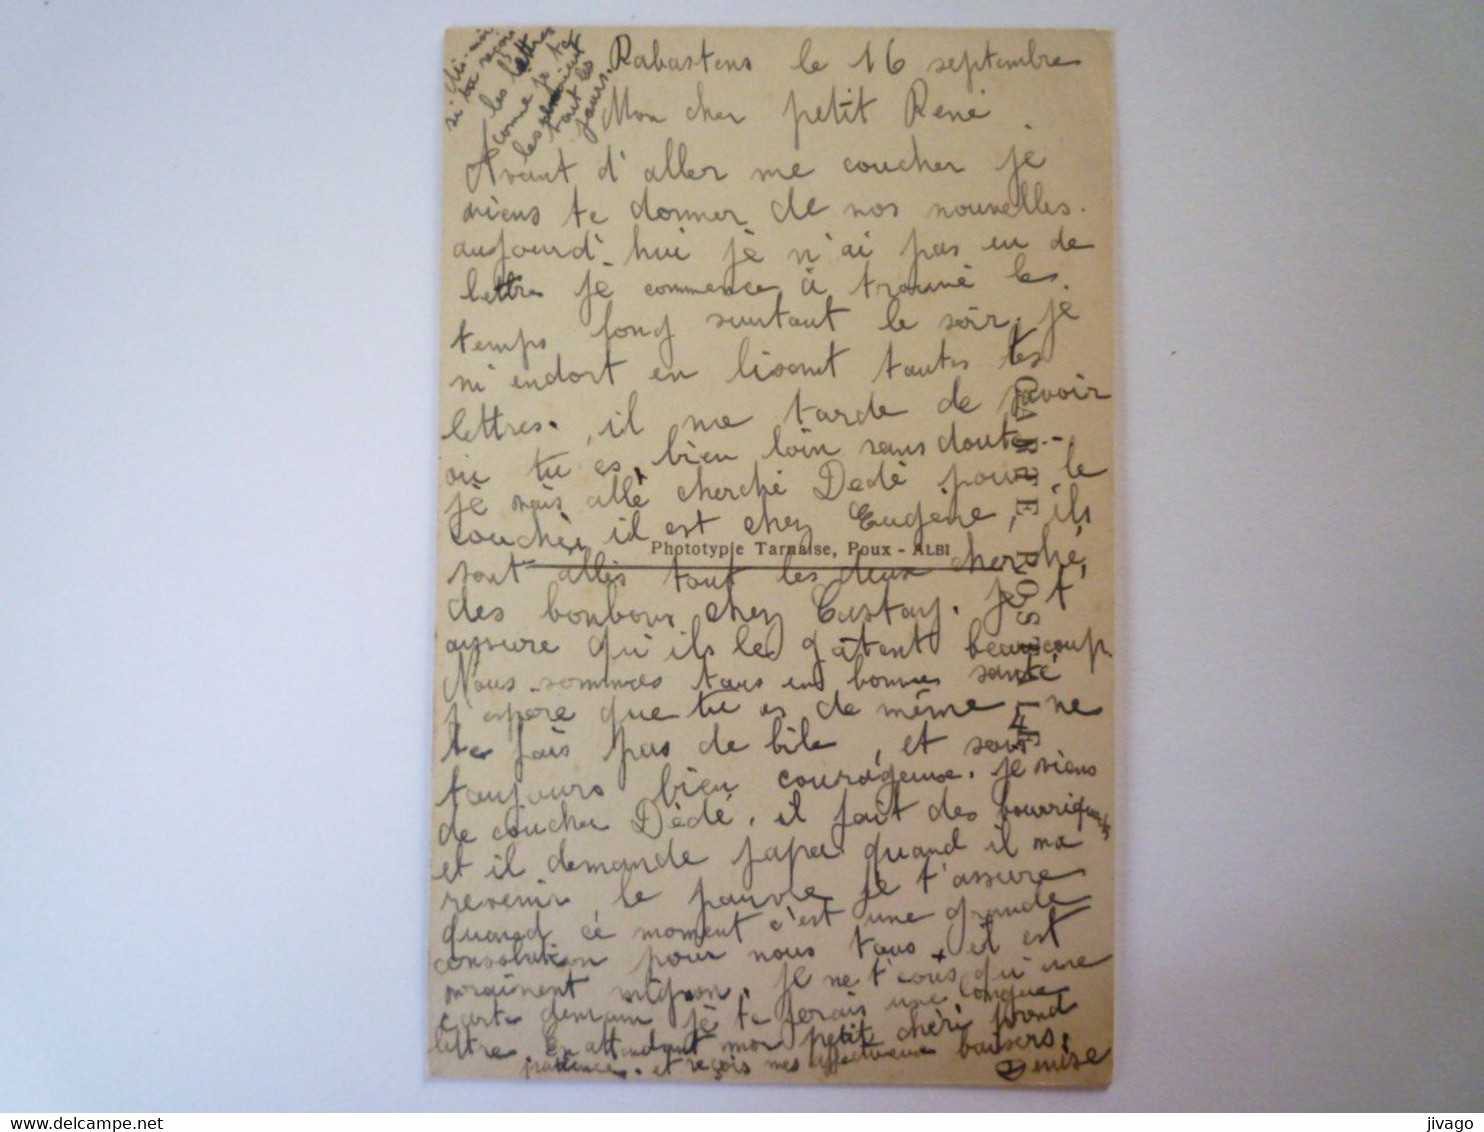 dis-moi
si tu reçois
les lettres
comme je te
les
tout les
jours.
Rabastens le 16 septembre
Mon cher petit René
Avant d'aller me coucher je
viens te donner de nos nouvelles.
aujourd'hui je n'ai pas eu de
lettre je commence à trouvé les
temps long surtout le soir. je
m'endort en lisant toutes tes
lettres. il me tarde de savoir
ou tu es, bien loin sans doute.
je vais allé cherché Dedé pour le
couché, il est chez Eugène, ils
Phototypie Tarnaise, Poux - ALBI
sont allés tout les deux cherché,
des bonbons chez Custay. je t'
assure qu'ils le gâtent beaucoup
Nous sommes tous en bonnes santé
j'espère que tu es de même ne
te fais pas de bile, et sois
toujours bien courageuse. je viens
de coucher Dèdé, il fait des bourriques
et il demande papa quand il va
revenir le pauvre je t'assure
quand cé moment c'est une grande
consolation pour nous tous, il est
vraiment mignon. je ne t'
carte demain je te ferais une longue
lettre. En attendant mon petit chéri prend
patience. et reçois mes affectueux baisers.
Denise
CARTE POSTALE
jivago